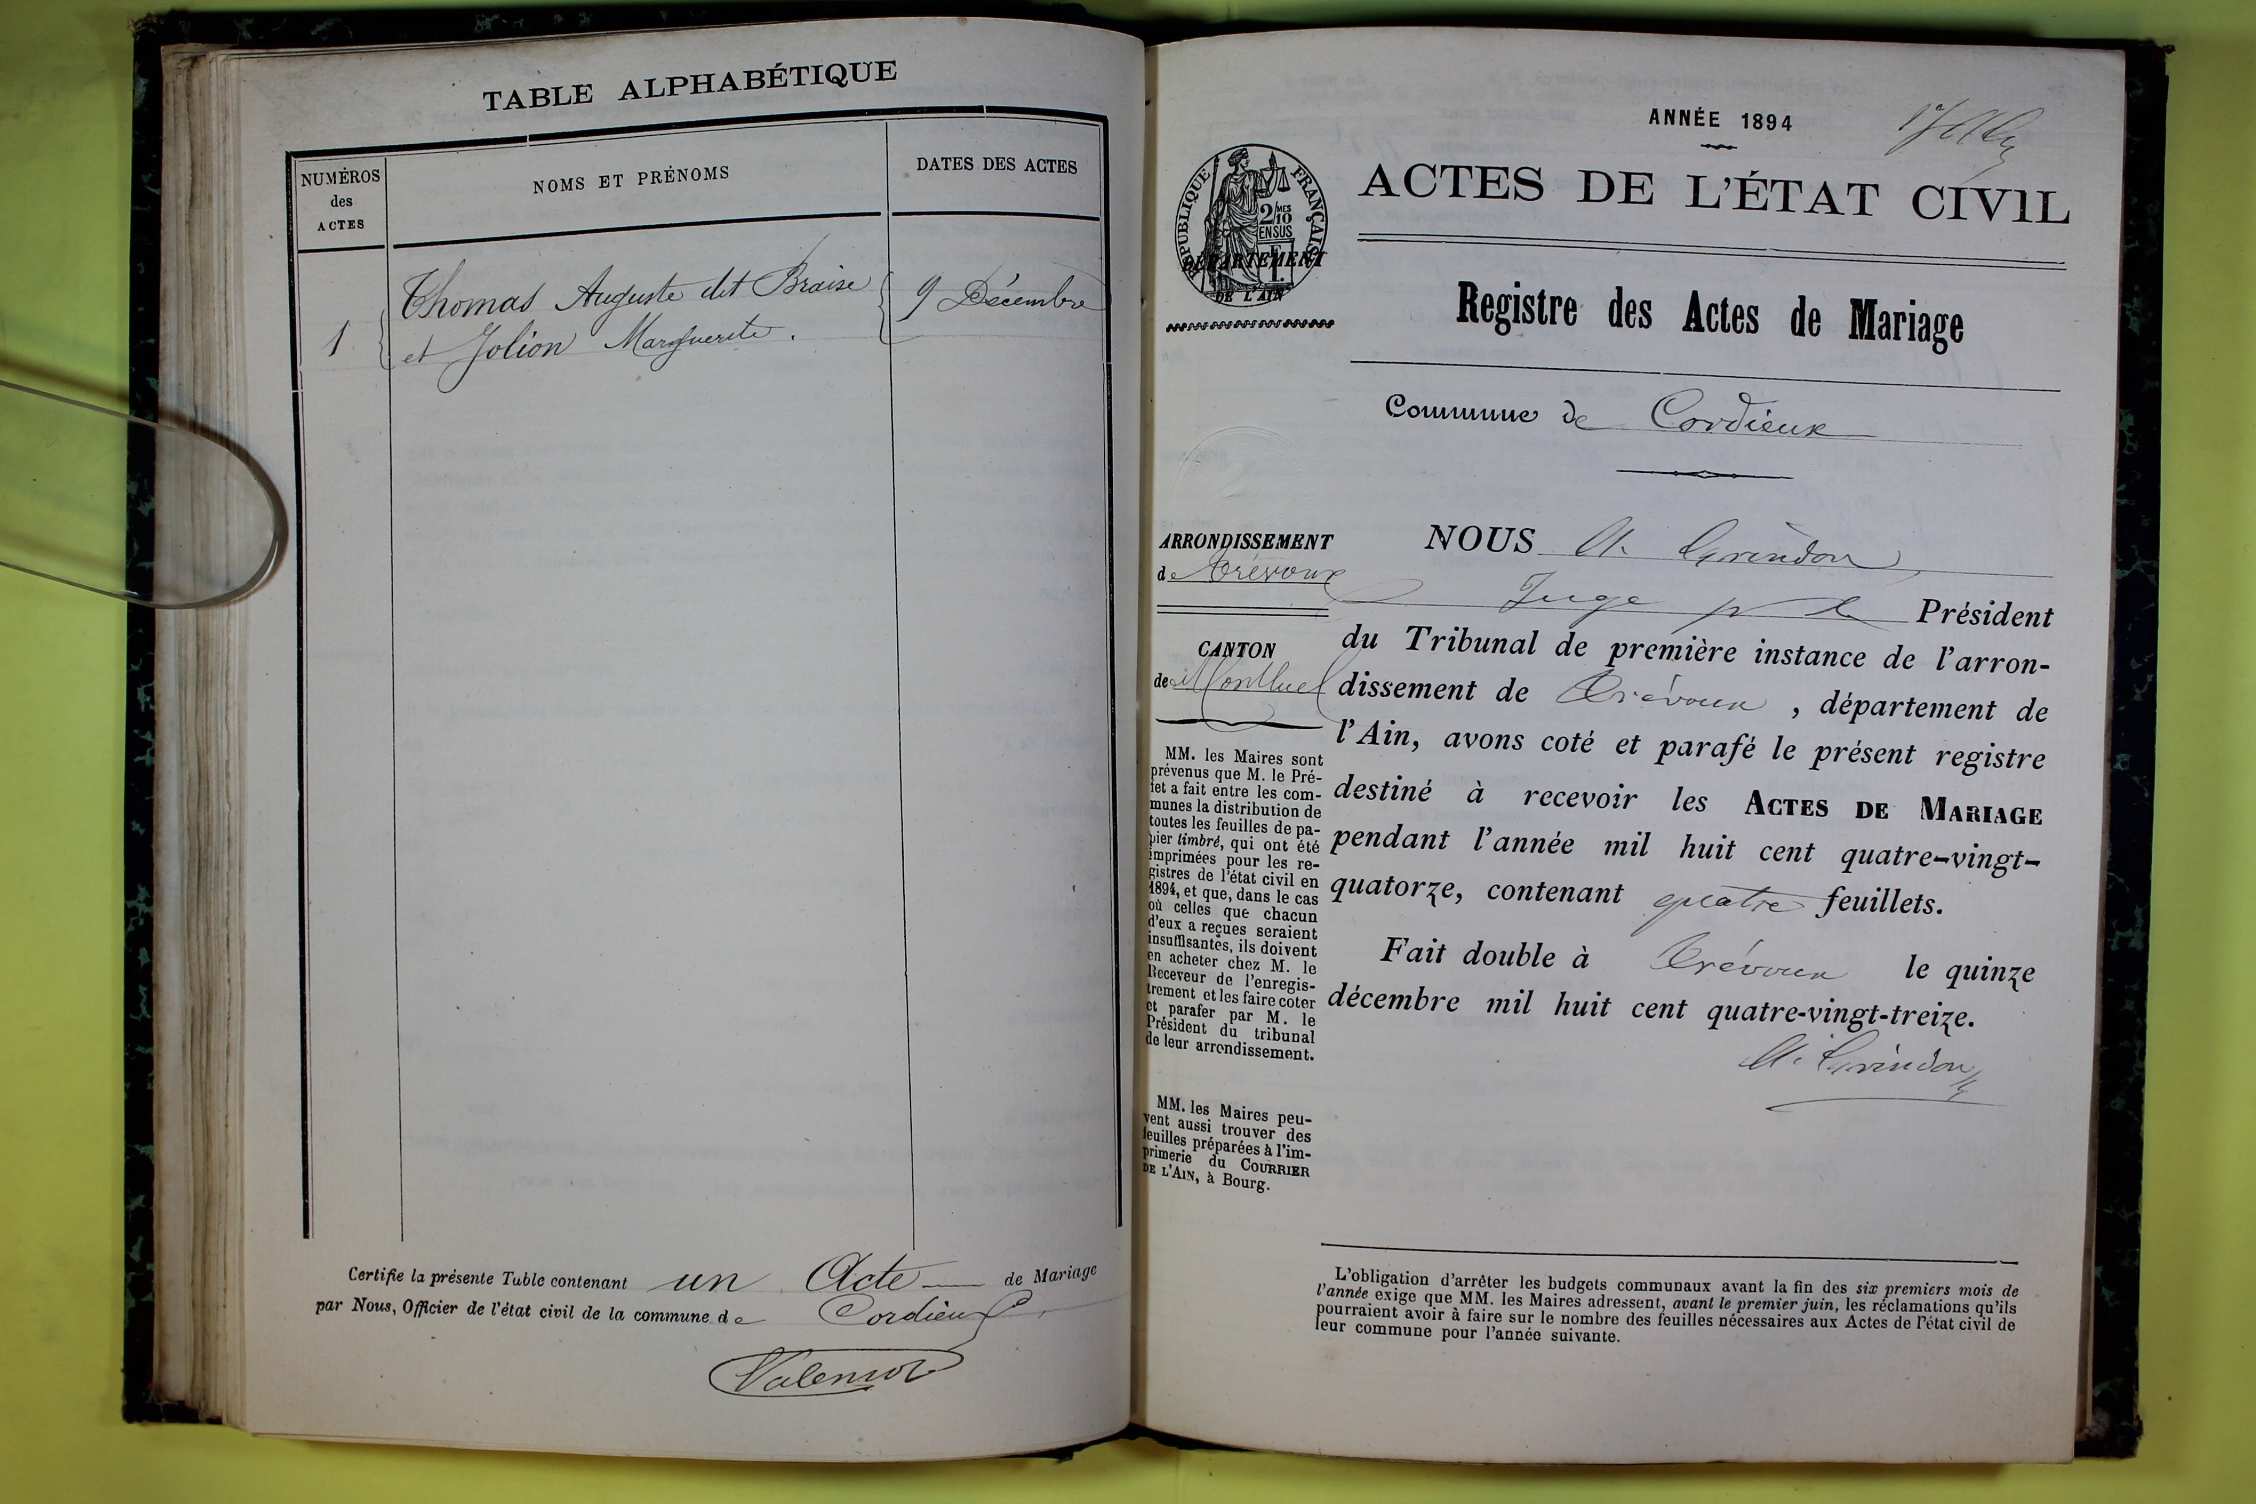 TABLE ALPHABÉTIQUE
NUMÉROS
des
ACTES
NOMS ET PRÉNOMS
DATES DES ACTES
1
Thomas Auguste dit Braise
et Jolion Marguerite.
9 Décembre
Certifie la présente Table contenant un Acte de Mariage
par Nous, Officier de l'état civil de la commune de Cordieux
ANNÉE 1894
ACTES DE L'ÉTAT CIVIL
RÉPUBLIQUE FRANÇAISE
2/10 MES
EN SUS
DÉPARTEMENT
DE L'AIN
Registre des Actes de Mariage
Commune de Cordieux
ARRONDISSEMENT
de Trévoux
CANTON
de Montluel
MM. les Maires sont
prévenus que M. le Pré-
fet a fait entre les com-
munes la distribution de
toutes les feuilles de pa-
pier timbré, qui ont été
imprimées pour les re-
gistres de l'état civil en
1894, et que, dans le cas
où celles que chacun
d'eux a reçues seraient
insuffisantes, ils doivent
en acheter chez M. le
Receveur de l'enregis-
trement et les faire coter
et parafer par M. le
Président du tribunal
de leur arrondissement.
MM. les Maires peu-
vent aussi trouver des
feuilles préparées à l'im-
primerie du COURRIER
DE L'AIN, à Bourg.
NOUS A. Grindon,
Juge p le Président
du Tribunal de première instance de l'arron-
dissement de Trévoux, département de
l'Ain, avons coté et parafé le présent registre
destiné à recevoir les ACTES DE MARIAGE
pendant l'année mil huit cent quatre-vingt-
quatorze, contenant quatre feuillets.
Fait double à Trévoux le quinze
décembre mil huit cent quatre-vingt-treize.
A. Grindon
L'obligation d'arrêter les budgets communaux avant la fin des six premiers mois de
l'année exige que MM. les Maires adressent, avant le premier juin, les réclamations qu'ils
pourraient avoir à faire sur le nombre des feuilles nécessaires aux Actes de l'état civil de
leur commune pour l'année suivante.